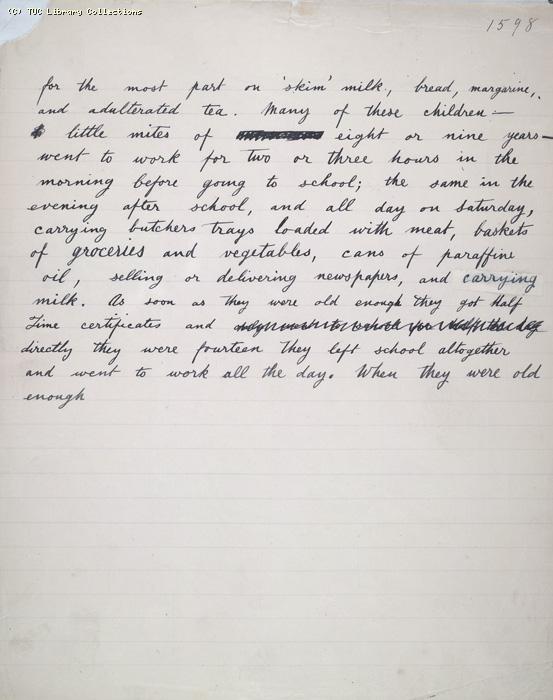 (C) TUC Library Collections
1598
for the most part on 'skim' milk, bread, margarine,
and adulterated tea. Many of these children —
little mites of eight or nine years —
went to work for two or three hours in the
morning before going to school; the same in the
evening after school, and all day on Saturday,
carrying butchers trays loaded with meat, baskets
of groceries and vegetables, cans of paraffine
oil, selling or delivering newspapers, and carrying
milk. As soon as they were old enough they got Half
Time certificates and
directly they were fourteen they left school altogether
and went to work all the day. When they were old
enough